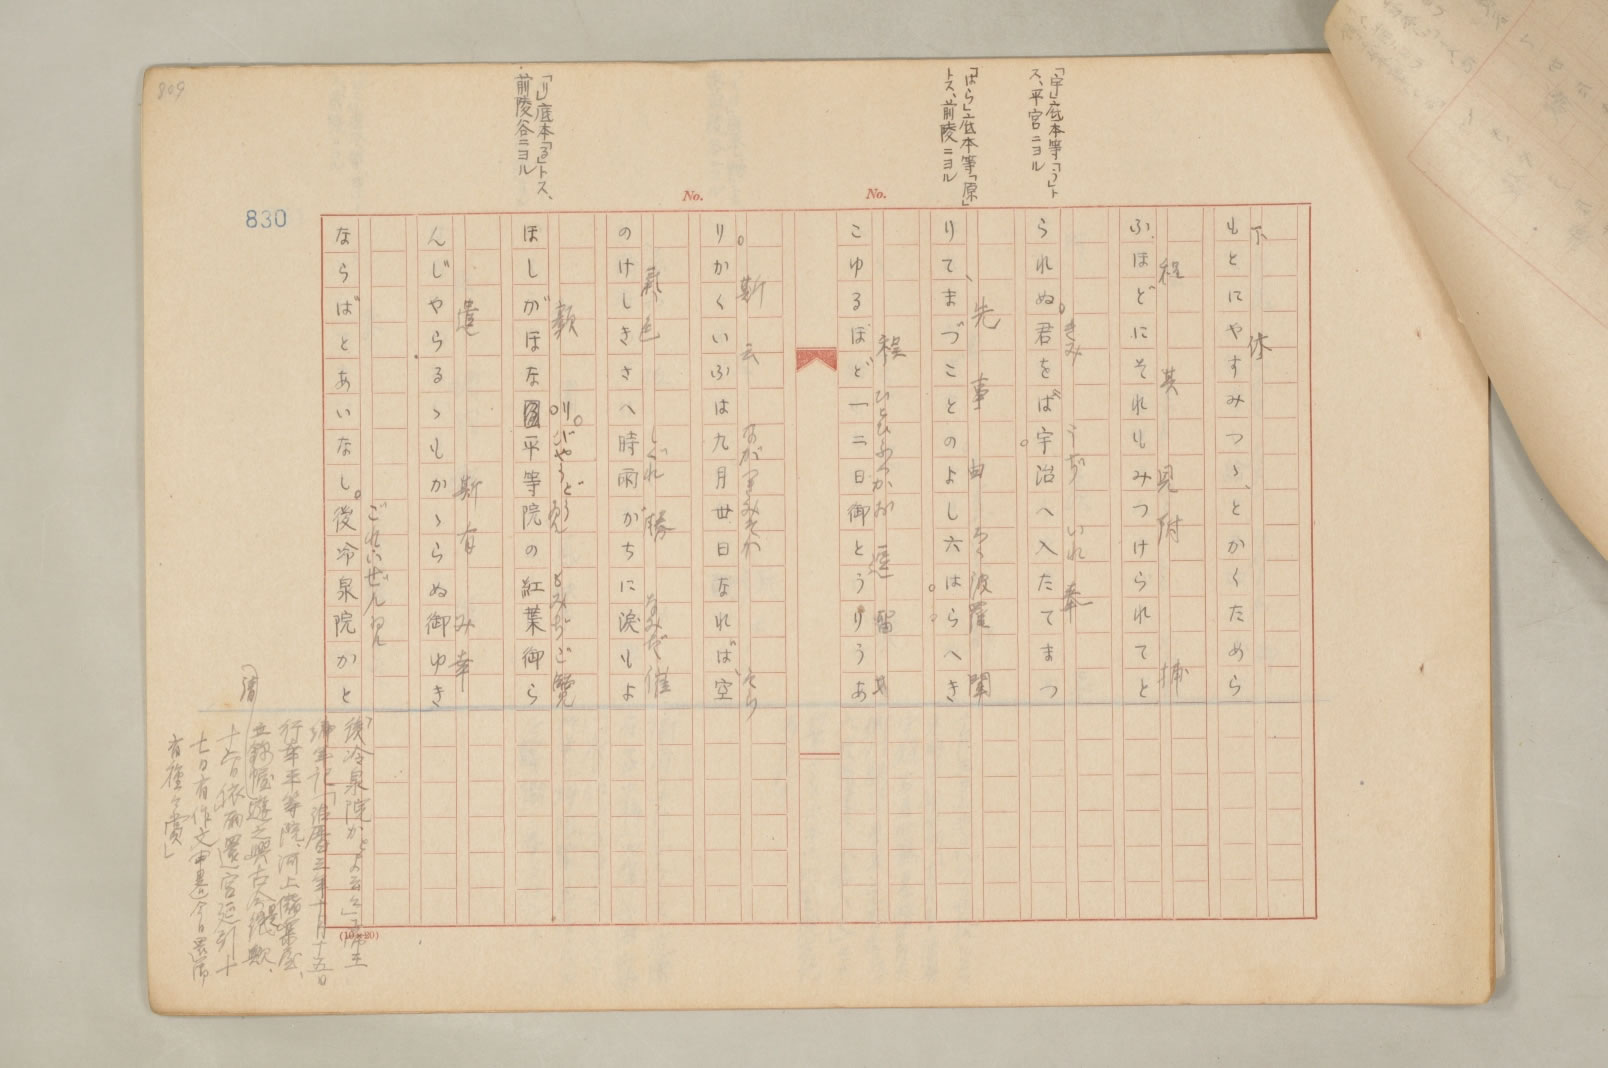 809
830
No.
No.
「宇」底本等「う」ト
ス、平宮ニヨル
「はら」底本等「原」
トス、前陵ニヨル
「り」底本「る」トス、
前陵谷ニヨル
下 休
もとにやすみつゝ、とかくためら
程 其 見 付 捕
ふほどにそれもみつけられてと
きみ うぢ いれ 奉
られぬ。君をば宇治へ入たてまつ
先 事 由 ろく 波羅 聞
りて、まづことのよし六はらへき
程 ひとひふつかお 逗留
こゆるほど一二日御とうりうあ
斯 云 ながつきみそか そら
り。かくいふは九月丗日なれば、空
気色 しぐれ 勝 なみだ 催
のけしきさへ時雨がちに涙もよ
顔 り。 びやうどうゐん もみぢ ご覧
ほしがほな 平等院の紅葉御ら
遣 斯 有 み幸
んじやらるゝもかゝらぬ御ゆき
ごれいぜんゐん
ならばとあいなし。後冷泉院かと
「後冷泉院かとよ云々」帝王
編年記「治暦三年十月十五。
行幸平等院、河上儲 屋、
七日有作文 今日還御
有種々賞」
(10×20)